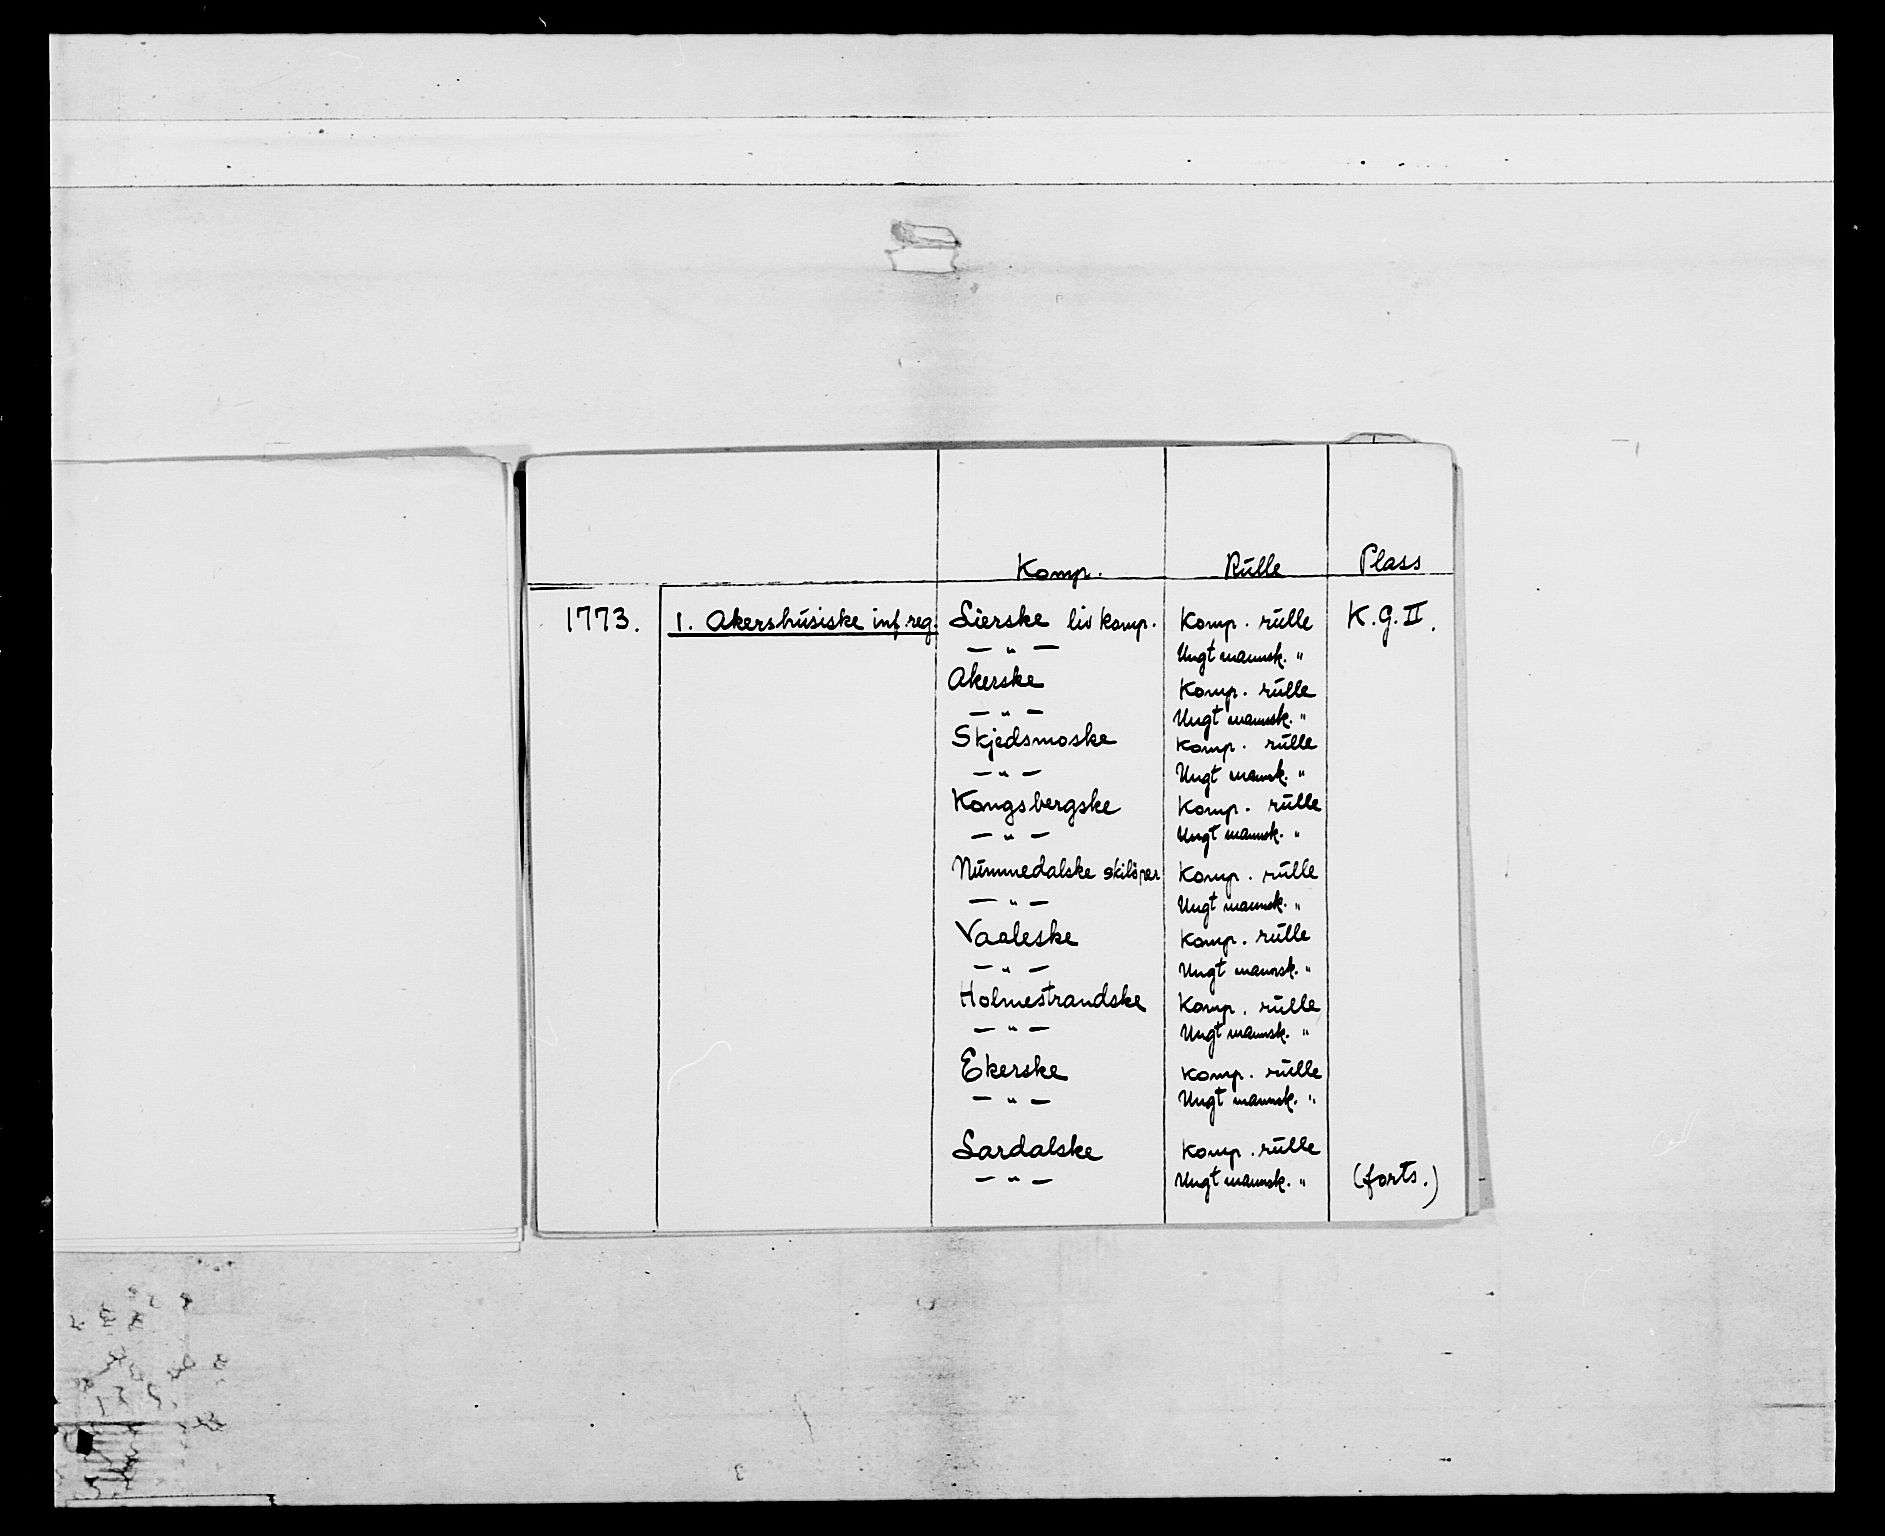 Komp. Rulle Plass
1773. 1. Akershusiske inf.reg. Lierske liv komp. Komp. rulle K.G.II.
— " — Ungt mannsk. "
Akerske Komp. rulle
— " — Ungt mannsk. "
Skjedsmoske Komp. rulle
— " — Ungt mansk. "
Kongsbergske Komp. rulle
— " — Ungt mannsk. "
Nummedalske skiløper Komp. rulle
— " — Ungt mannsk. "
Vaaleske Komp. rulle
— " — Ungt mannsk. "
Holmestrandske Komp. rulle
— " — Ungt mannsk. "
Ekerske Komp. rulle
— " — Ungt mannsk. "
Lardalske Komp. rulle
— " — Ungt mannsk. " (forts.)